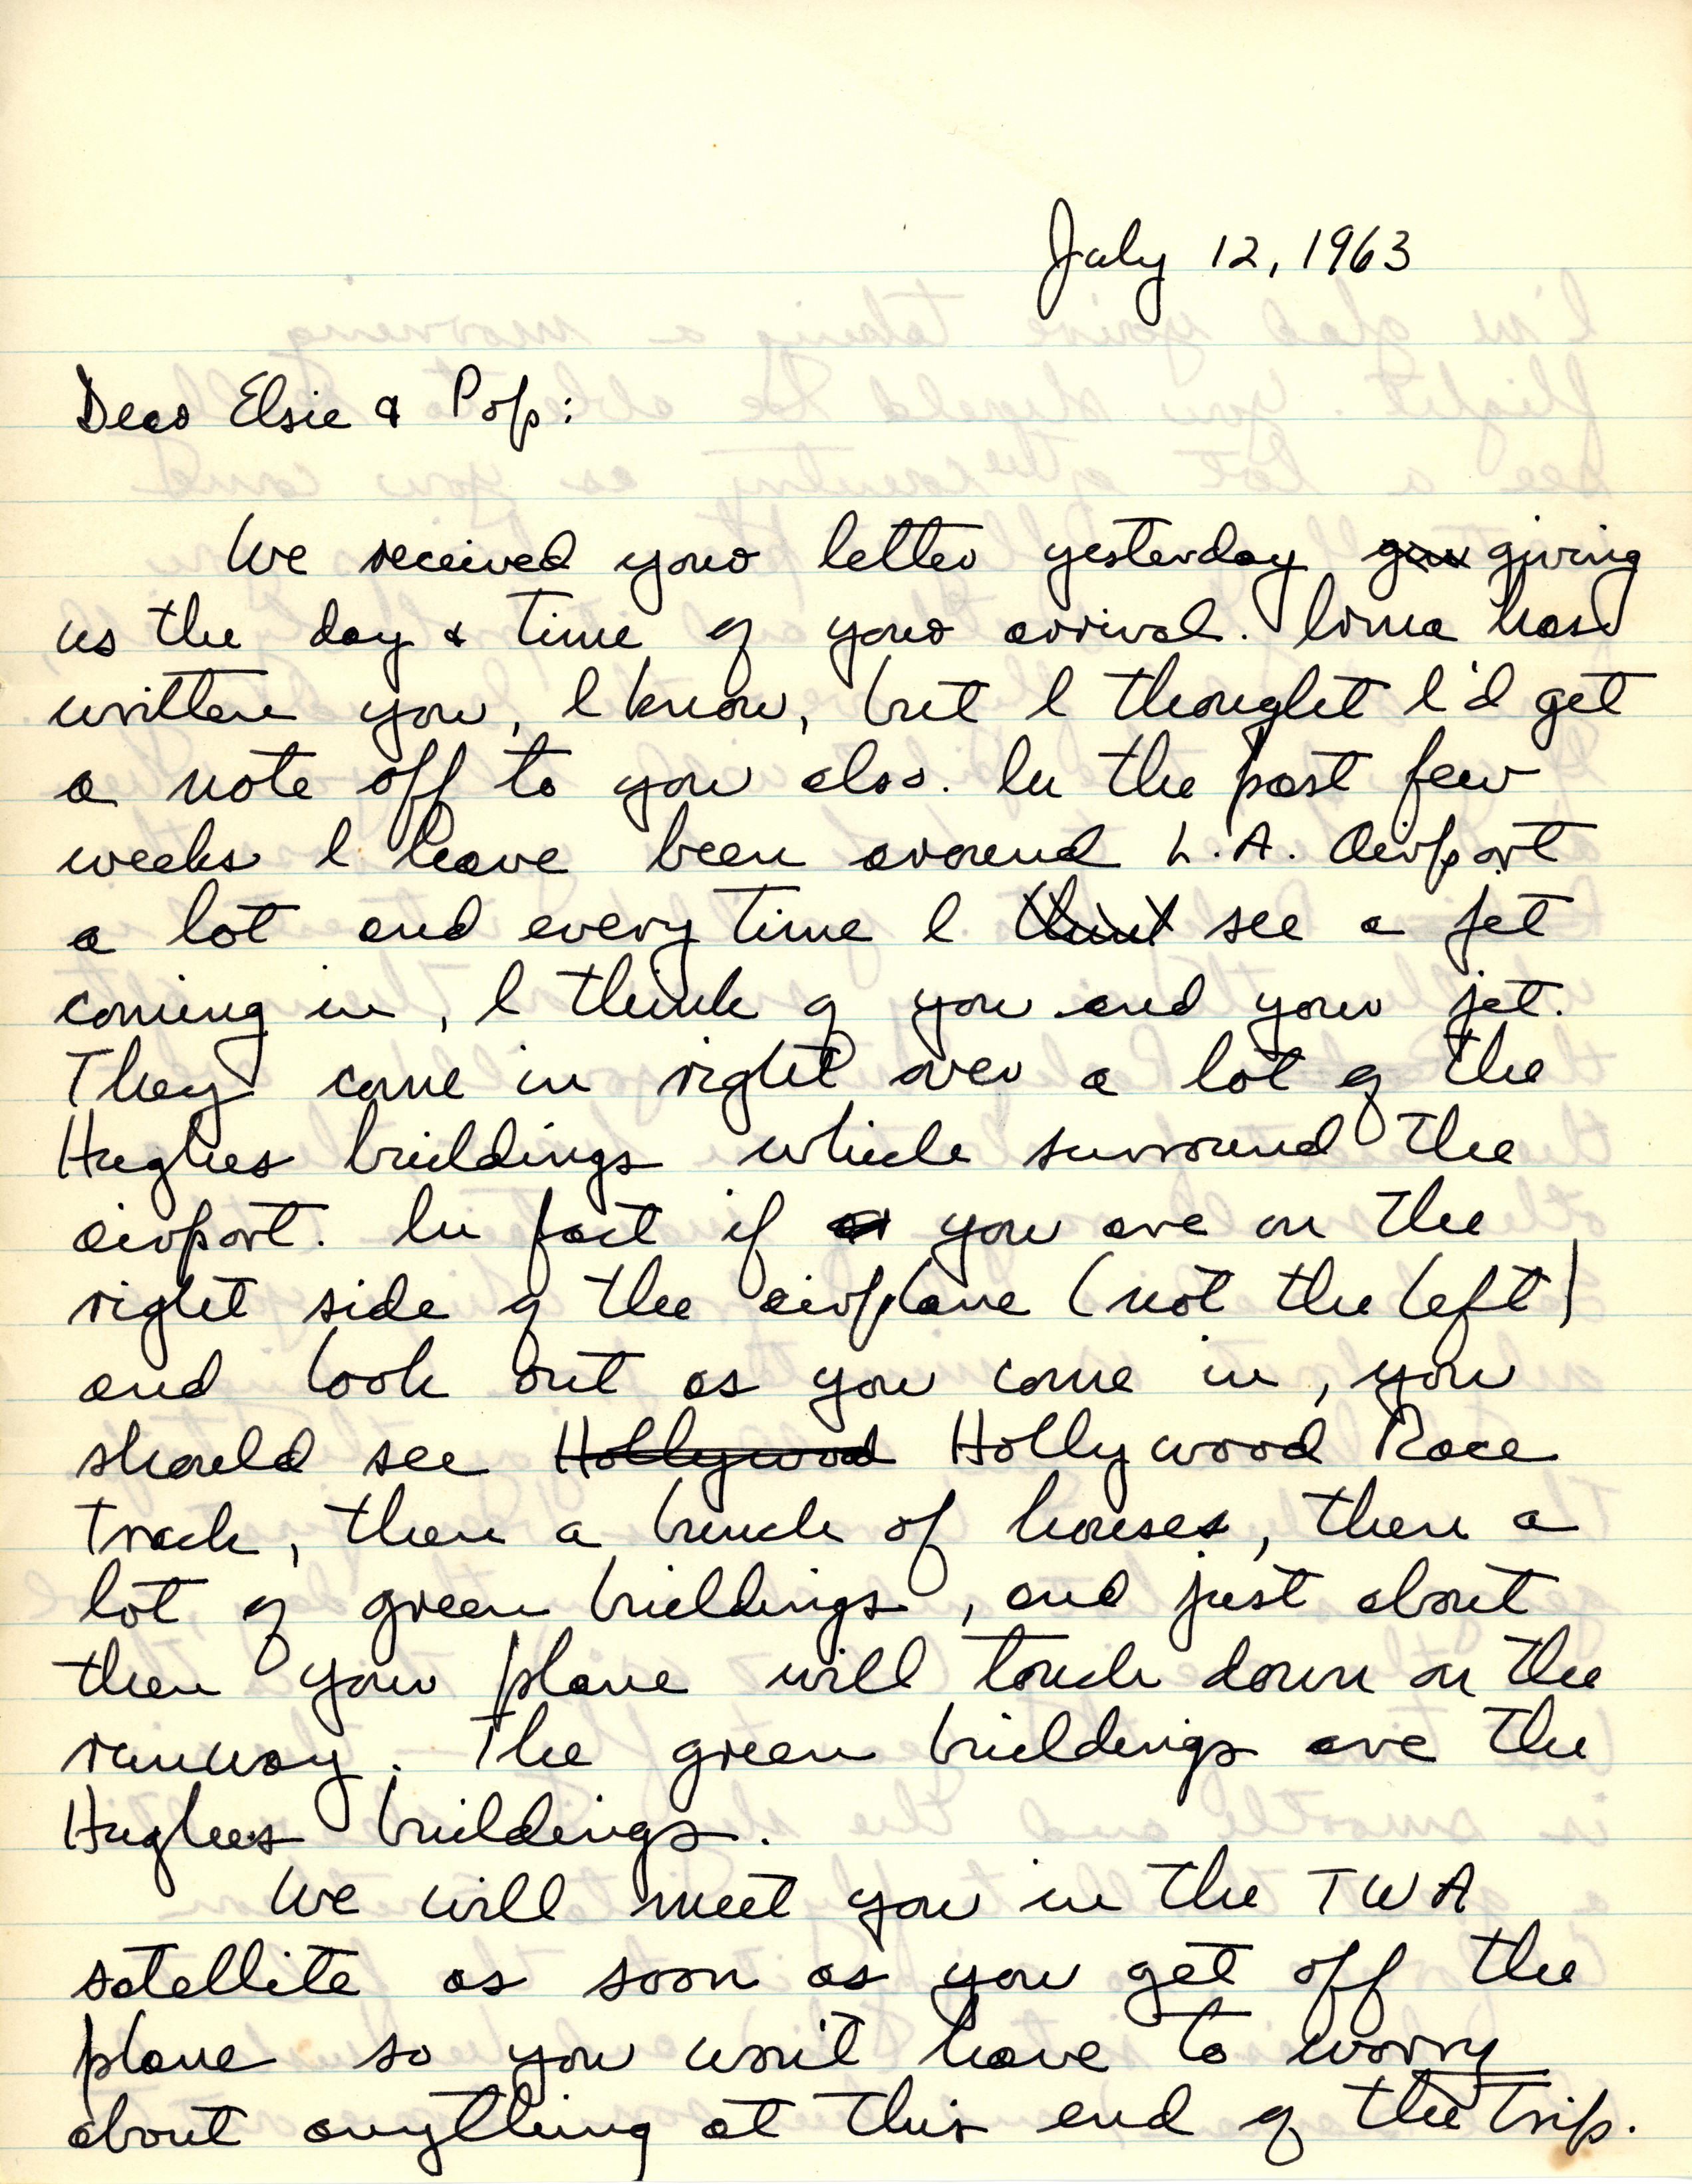 July 12, 1963
Dear Elsie & Pop:
We received your letter yesterday giving
us the day & time of your arrival. Irma has
written you, I know, but I thought I'd get
a note off to you also. In the past few
weeks I have been around L.A. Airport
a lot and every time I think see a jet
coming in, I think of you and your jet.
They come in right over a lot of the
Hughes buildings which surround the
airport. In fact if you are on the
right side of the airplane (not the left)
and look out as you come in, you
should see Hollywood Hollywood Race
Track, then a bunch of houses, then a
lot of green buildings, and just about
then your plane will touch down on the
runway. The green buildings are the
Hughes buildings.
We will meet you in the TWA
satellite as soon as you get off the
plane so you won't have to worry
about anything at this end of the trip.